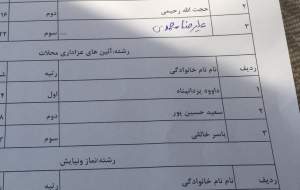 ۲ حجت الله رحیمی دوم
۳ علیرضا محمدی سوم
رشته:آئین های عزاداری محلات
ردیف نام نام خانوادگی رتبه
۱ داوود یزدانپناه اول
۲ سعید حسین پور دوم
۳ یاسر خالقی سوم
رشته:نماز ونیایش
ردیف نام نام خانوادگی رتبه